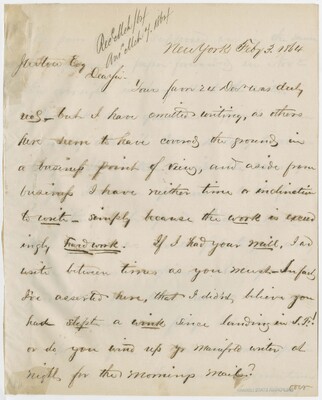 Recd Mch 1/64
Ansd Mch 7. 1864
New York Feby 3. 1864
Esq
Dear Sir
Your favor 24 Decr was duly
recd - but I have omitted writing, as others
here seem to have covered the grounds in
a business point of view, and aside from
business I have neither time or inclination
to write - simply because the work is exceed
ingly hard work. If I had your mail, I'd
write between times as you must - In fact
I've asserted here, that I didn't believe you
had slept a wink since landing in S.F.!
or do you wind up yr manifold writer at
night, for the mornings mails?